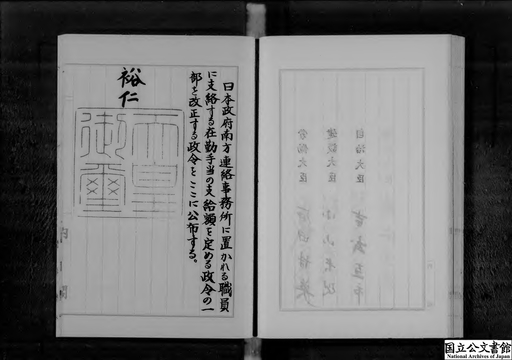 日本政府南方連絡事務所に置かれる職員
に支給する在勤手当の支給額を定める政令の一
部を改正する政令をここに公布する。
裕仁
天皇
御璽
自治大臣
建設大臣
労働大臣
国立公文書館
National Archives of Japan